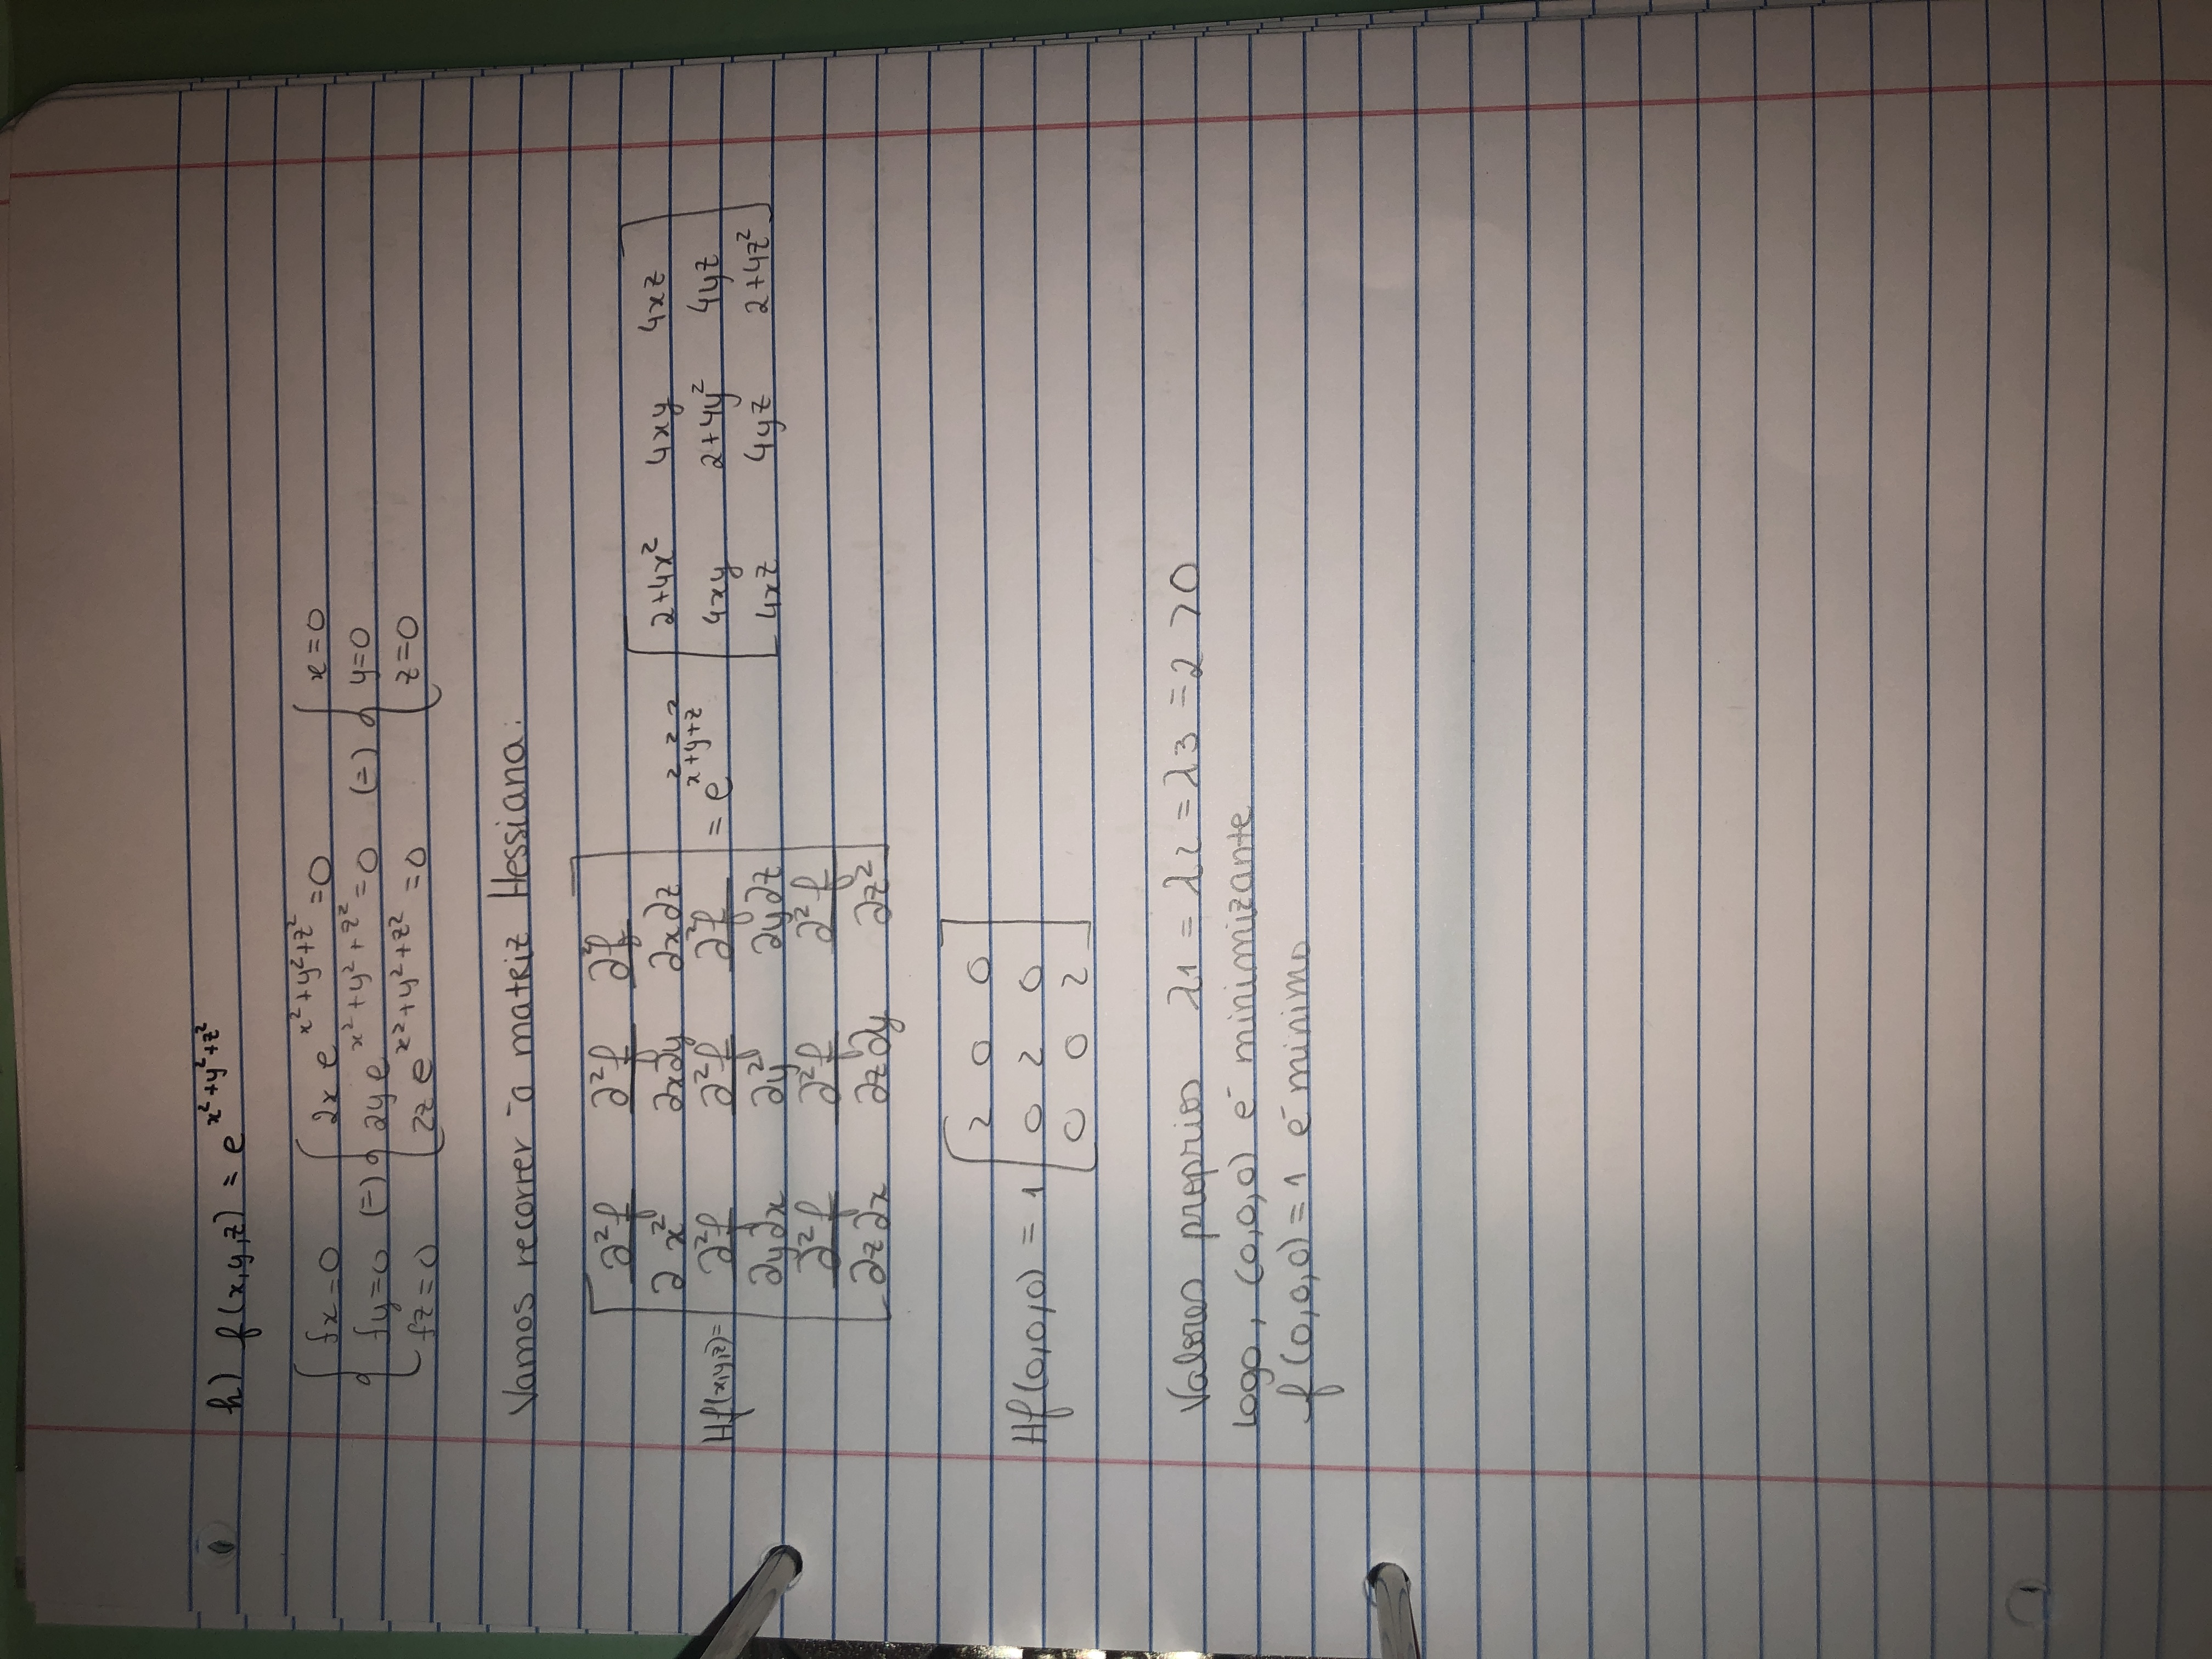 h) f(x,y,z) = e^{x²+y²+z²}
{ fx=0 { 2x e^{x²+y²+z²} =0 { x=0
{ fy=0 (=) { 2y e^{x²+y²+z²} =0 (=) { y=0
{ fz=0 { 2z e^{x²+y²+z²} =0 { z=0
Vamos recorrer à matriz Hessiana:
Hf(x,y,z)= [ ∂²f/∂x² ∂²f/∂x∂y ∂²f/∂x∂z ; ∂²f/∂y∂x ∂²f/∂y² ∂²f/∂y∂z ; ∂²f/∂z∂x ∂²f/∂z∂y ∂²f/∂z² ] = e^{x²+y²+z²} [ 2+4x² 4xy 4xz ; 4xy 2+4y² 4yz ; 4xz 4yz 2+4z² ]
Hf(0,0,0) = 1 [ 2 0 0 ; 0 2 0 ; 0 0 2 ]
Valores proprios λ1 = λ2 = λ3 = 2 >0
Logo, (0,0,0) é minimizante
f(0,0,0)=1 é minimo